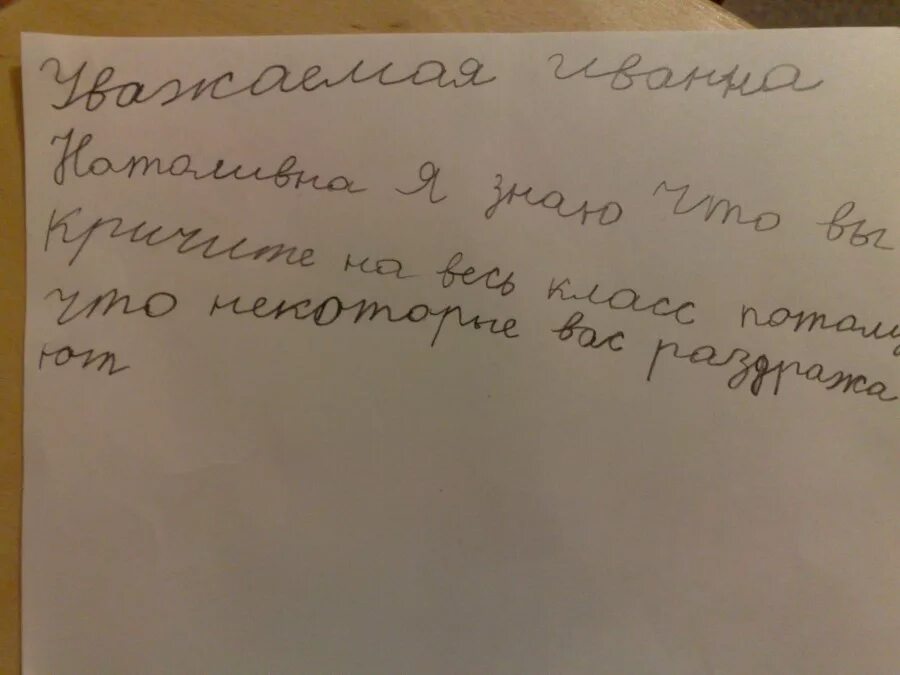 Уважаемая иванна
Наталивна Я знаю что вы
Кричите на весь класс поталу
что некоторые вас раздража
ют